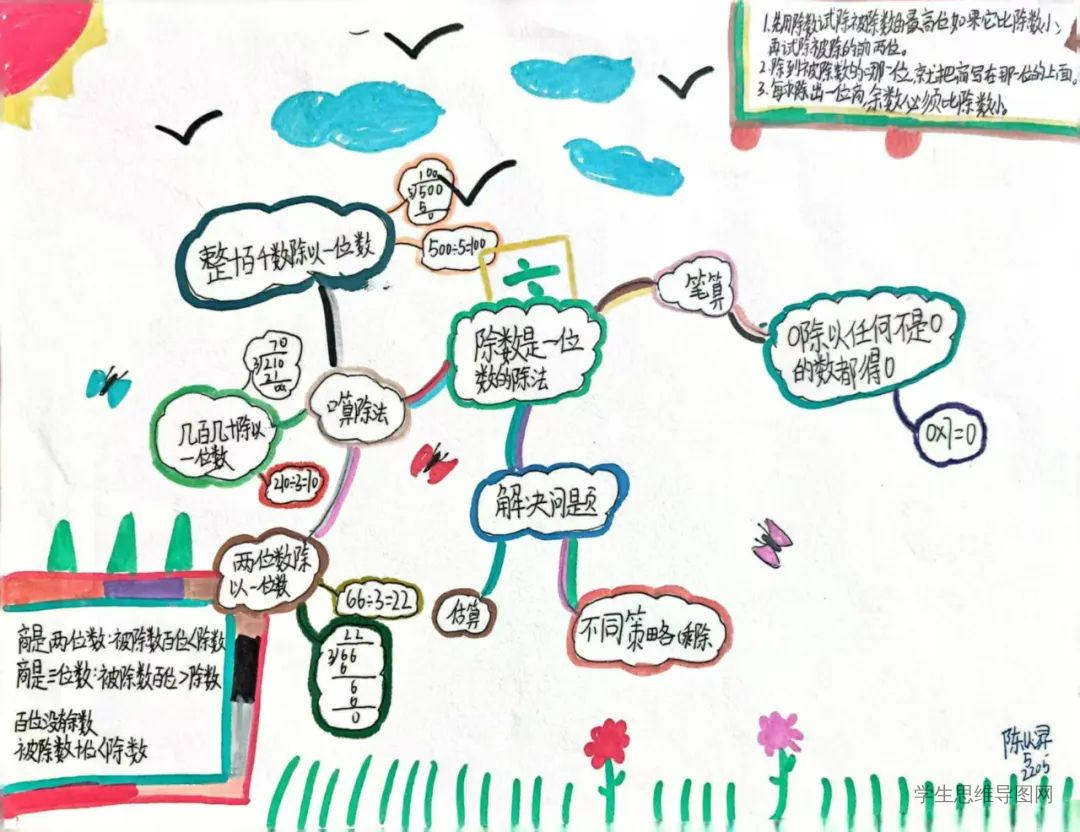 1.先用除数试除被除数的最高位如果它比除数小;
再试除被除的前两位。
2.除到被除数的哪一位,就把商写在那一位的上面。
3.每次除出一位商,余数必须比除数小。
整十百千数除以一位数
100
5)500
5
0
500÷5=100
÷
除数是一位
数的除法
笔算
0除以任何不是0
的数都得0
0X1=0
口算除法
70
3)210
21
00
几百几十除以
一位数
210÷3=10
两位数除
以一位数
66÷3=22
22
3)66
6
6
6
0
解决问题
估算
不同策略
商是两位数:被除数百位<除数
商是三位数:被除数百位>除数
百位没有余数
被除数十位<除数
2205
学生思维导图网